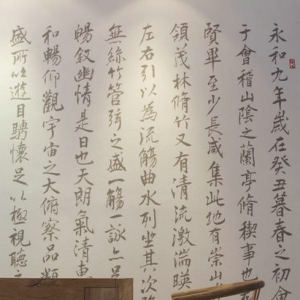 永和九年歲在癸丑暮春之初會
于會稽山陰之蘭亭脩稧事也
賢畢至少長咸集此地有崇山
領茂林脩竹又有清流激湍暎
左右引以為流觴曲水列坐其次
無絲竹管弦之盛一觴一詠亦足
暢叙幽情是日也天朗氣清
和暢仰觀宇宙之大俯察品類
盛所以遊目騁懷足以極視聽之